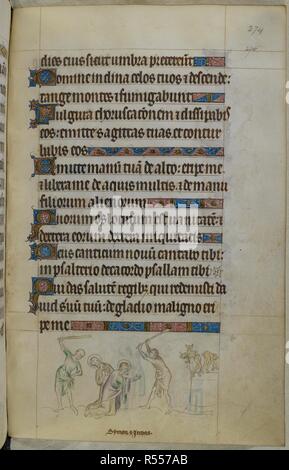 274
dies eius sicut umbra pretereunt
Domine inclina celos tuos & descende:
tange montes & fumigabunt
Fulgura choruscationem & dissipabis
eos: emitte sagittas tuas et contur
babis eos
Emitte manum tuam de alto: eripe me
& libera me de aquis multis: & de manu
filiorum alienorum
Quorum os locutum est uanitatem:
dextera eorum dextera iniquitatis
Deus canticum nouum cantabo tibi:
in psalterio decacordo psallam tibi
Qui das salutem regibus: qui redemisti da
uid seruum tuum: de gladio maligno eri
pe me
Symon & Judas
alamy
Image ID: R557AB
www.alamy.com